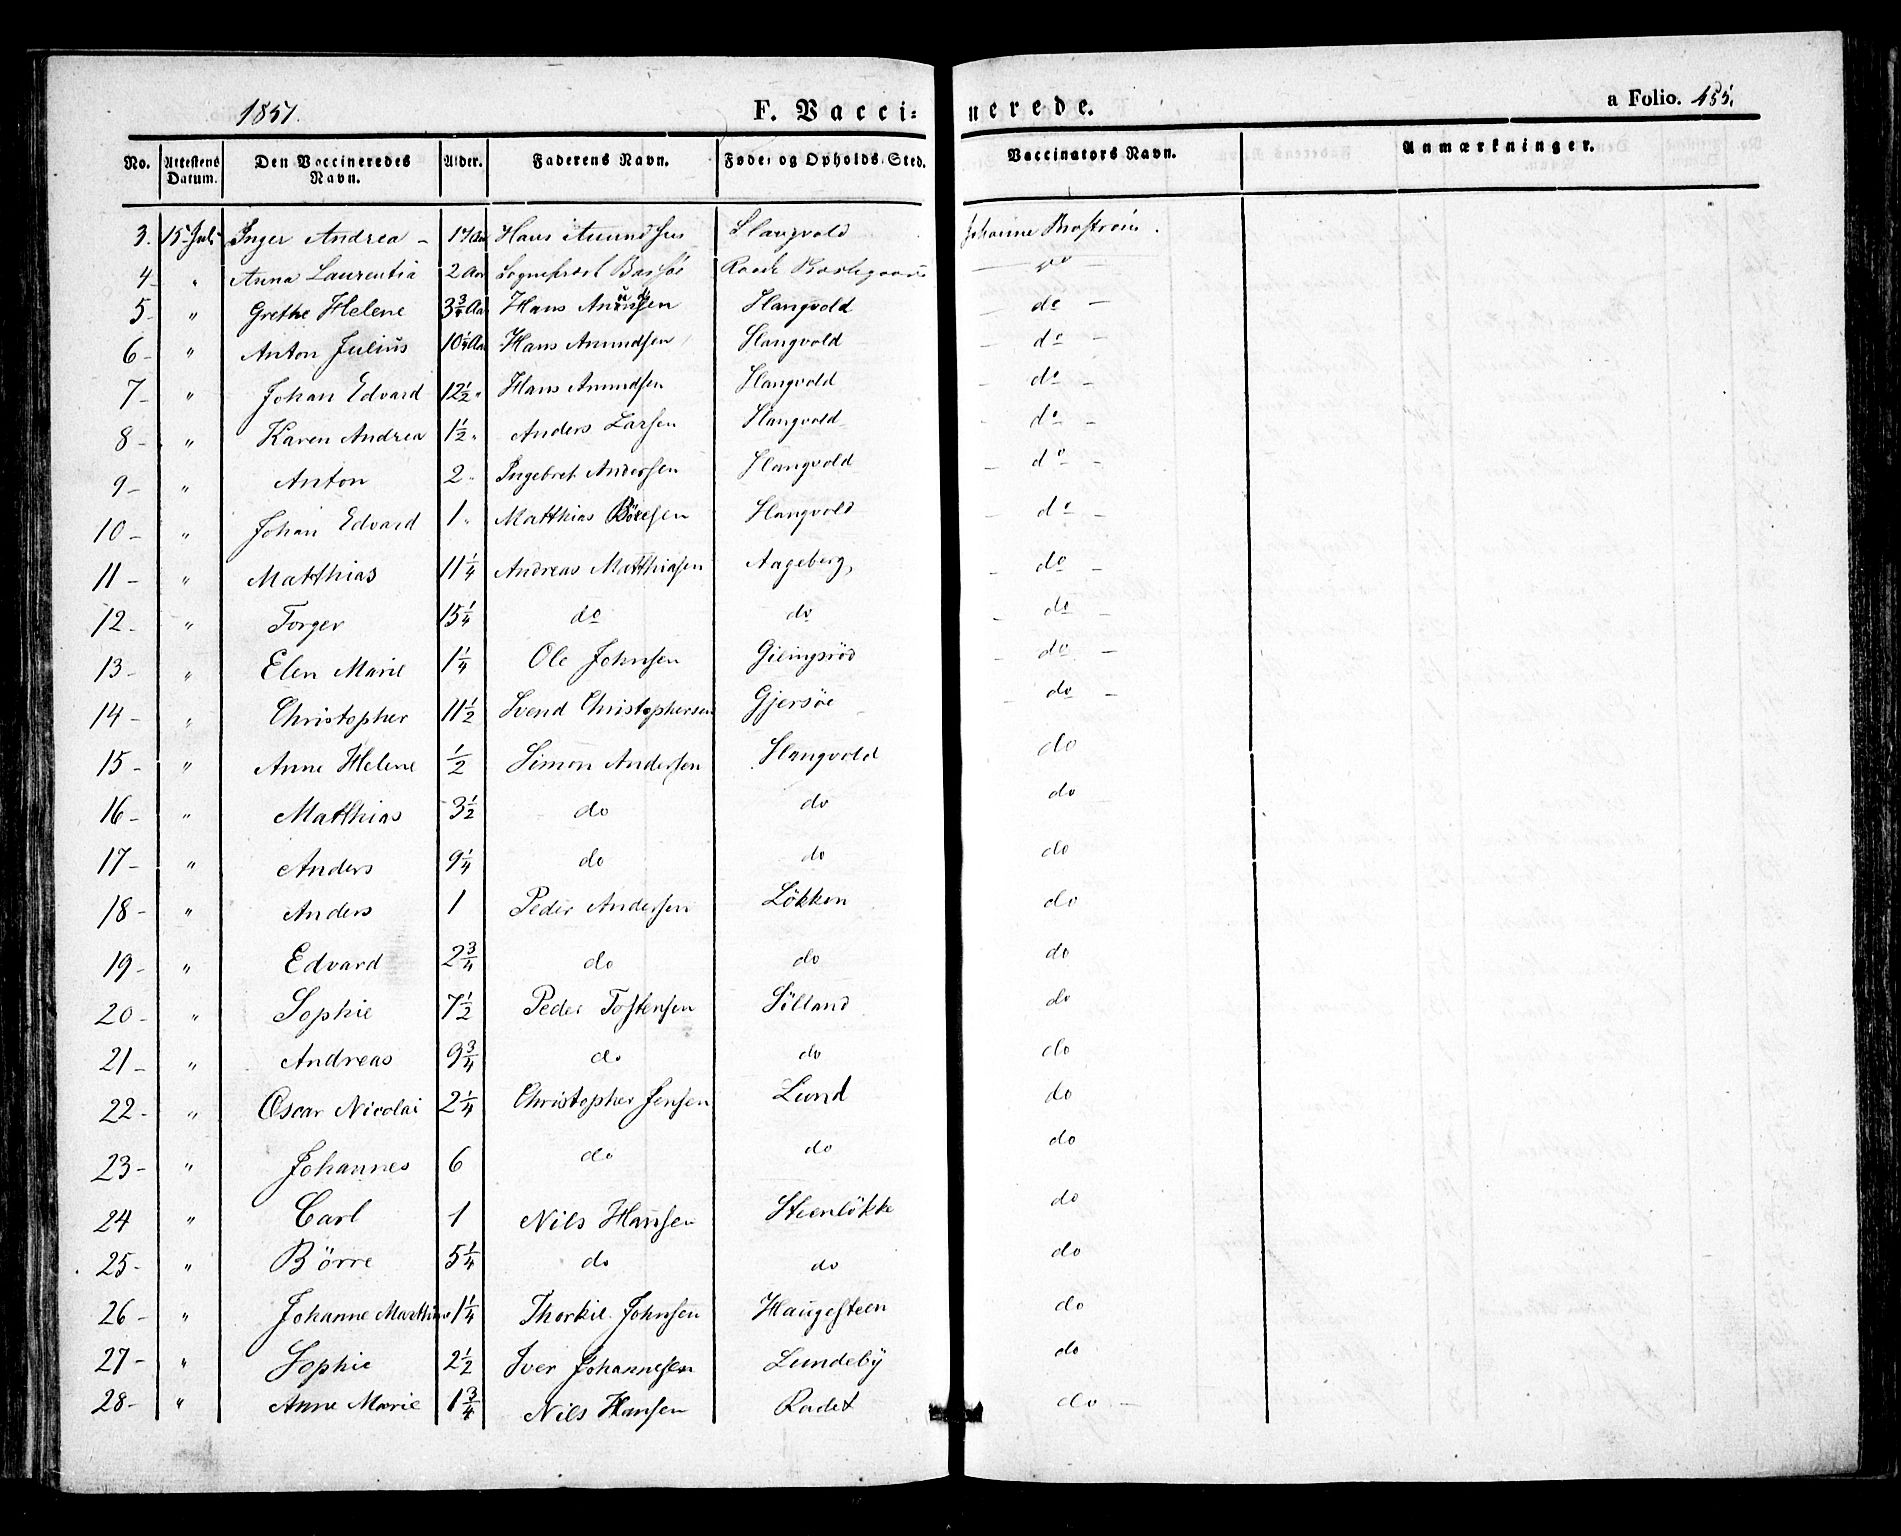 1851. F. Vaccinerede. a Folio. 455.
No. Attestens Datum. Den Vaccineredes Navn. Alder. Faderens Navn. Føde- og Opholds-Sted. Vaccinators Navn. Anmærkninger.
3. 15 Juli Inger Andrea – 17 Aar Hans Amundsen Slangvold Johanne Brostrøm.
4 – " Anna Laurentia 2 Aar Sognepræst Raade do
5 – " Grethe Helene 3 3/4 Aar Hans Amundsen Slangvold – do –
6 – " Anton Julius 10 1/4 Aar Hans Amundsen Slangvold – do –
7 – " Johan Edvard 12 1/2 " Hans Amundsen Slangvold – do –
8 – " Karen Andrea 1 1/2 " Anders Larsen Slangvold – do –
9 – " Anton 2 " Ingebret Andersen Slangvold – do –
10 – " Johan Edvard 1 " Matthias Börresen Slangvold – do –
11 – " Matthias 11 1/4 Andreas Matthiasen Aageberg, – do –
12 – " Torger 15 1/4 do do – do –
13 – " Elen Marie 1 1/4 Ole Johnsen Gilingsröd – do –
14 – " Christopher 11 1/2 Svend Christophersen Gjersöe do –
15 – " Anne Helene 1/2 Simon Andersen Slangvold do
16 – " Matthias 3 1/2 do do do
17 – " Anders 9 1/4 do do do
18 – " Anders 1 Peder Andersen Lökken do
19 – " Edvard 2 3/4 do do do
20 – " Sophie 7 1/2 Peder Tostensen Sölland do
21 – " Andreas 9 3/4 do do do
22 – " Oscar Nicolai 2 1/4 Christopher Jensen Lund do
23 – " Johannes 6 do do do
24 " Carl 1 Nils Hansen Steenlökke do
25 – " Börre 5 1/4 do do do
26 – " Johanne Marthine 1 1/4 Thorkil Johnsen Haugesteen do
27 – " Sophie 2 1/2 Iver Johannesen Lundeby do
28 – " Anne Marie 1 3/4 Nils Hansen Rodet do –